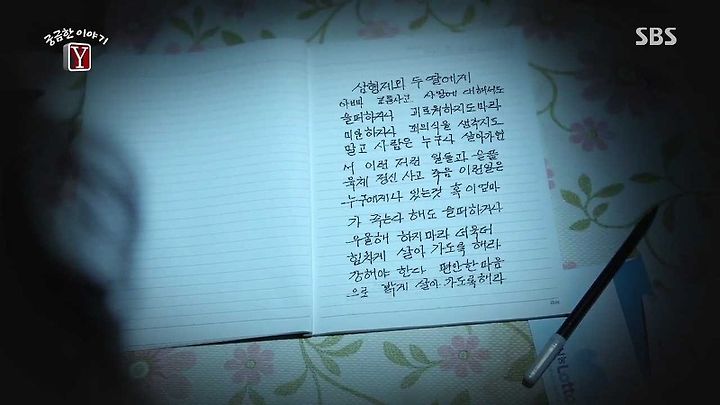 궁금한 이야기
Y
SBS
삼형제와 두 딸에게
아빠 교통사고 사망에 대해서도
슬퍼하거나 괴로워하지도마라
미안하거나 죄의식을 생각지도
말고 사람은 누구나 살아가면
서 이런 저런 일들과 슬픔
육체 정신 사고 죽음 이런일은
누구에게나 있는것 혹 이엄마
가 죽는다 해도 슬퍼하거나
우울해 하지마라 더욱더
힘차게 살아 가도록 해라
강해야 한다 편안한 마음
으로 밝게 살아 가도록해라
Lotto